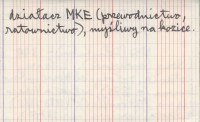 działacz MKE (przewodnictwo,
ratownictwo), myśliwy na kozice.